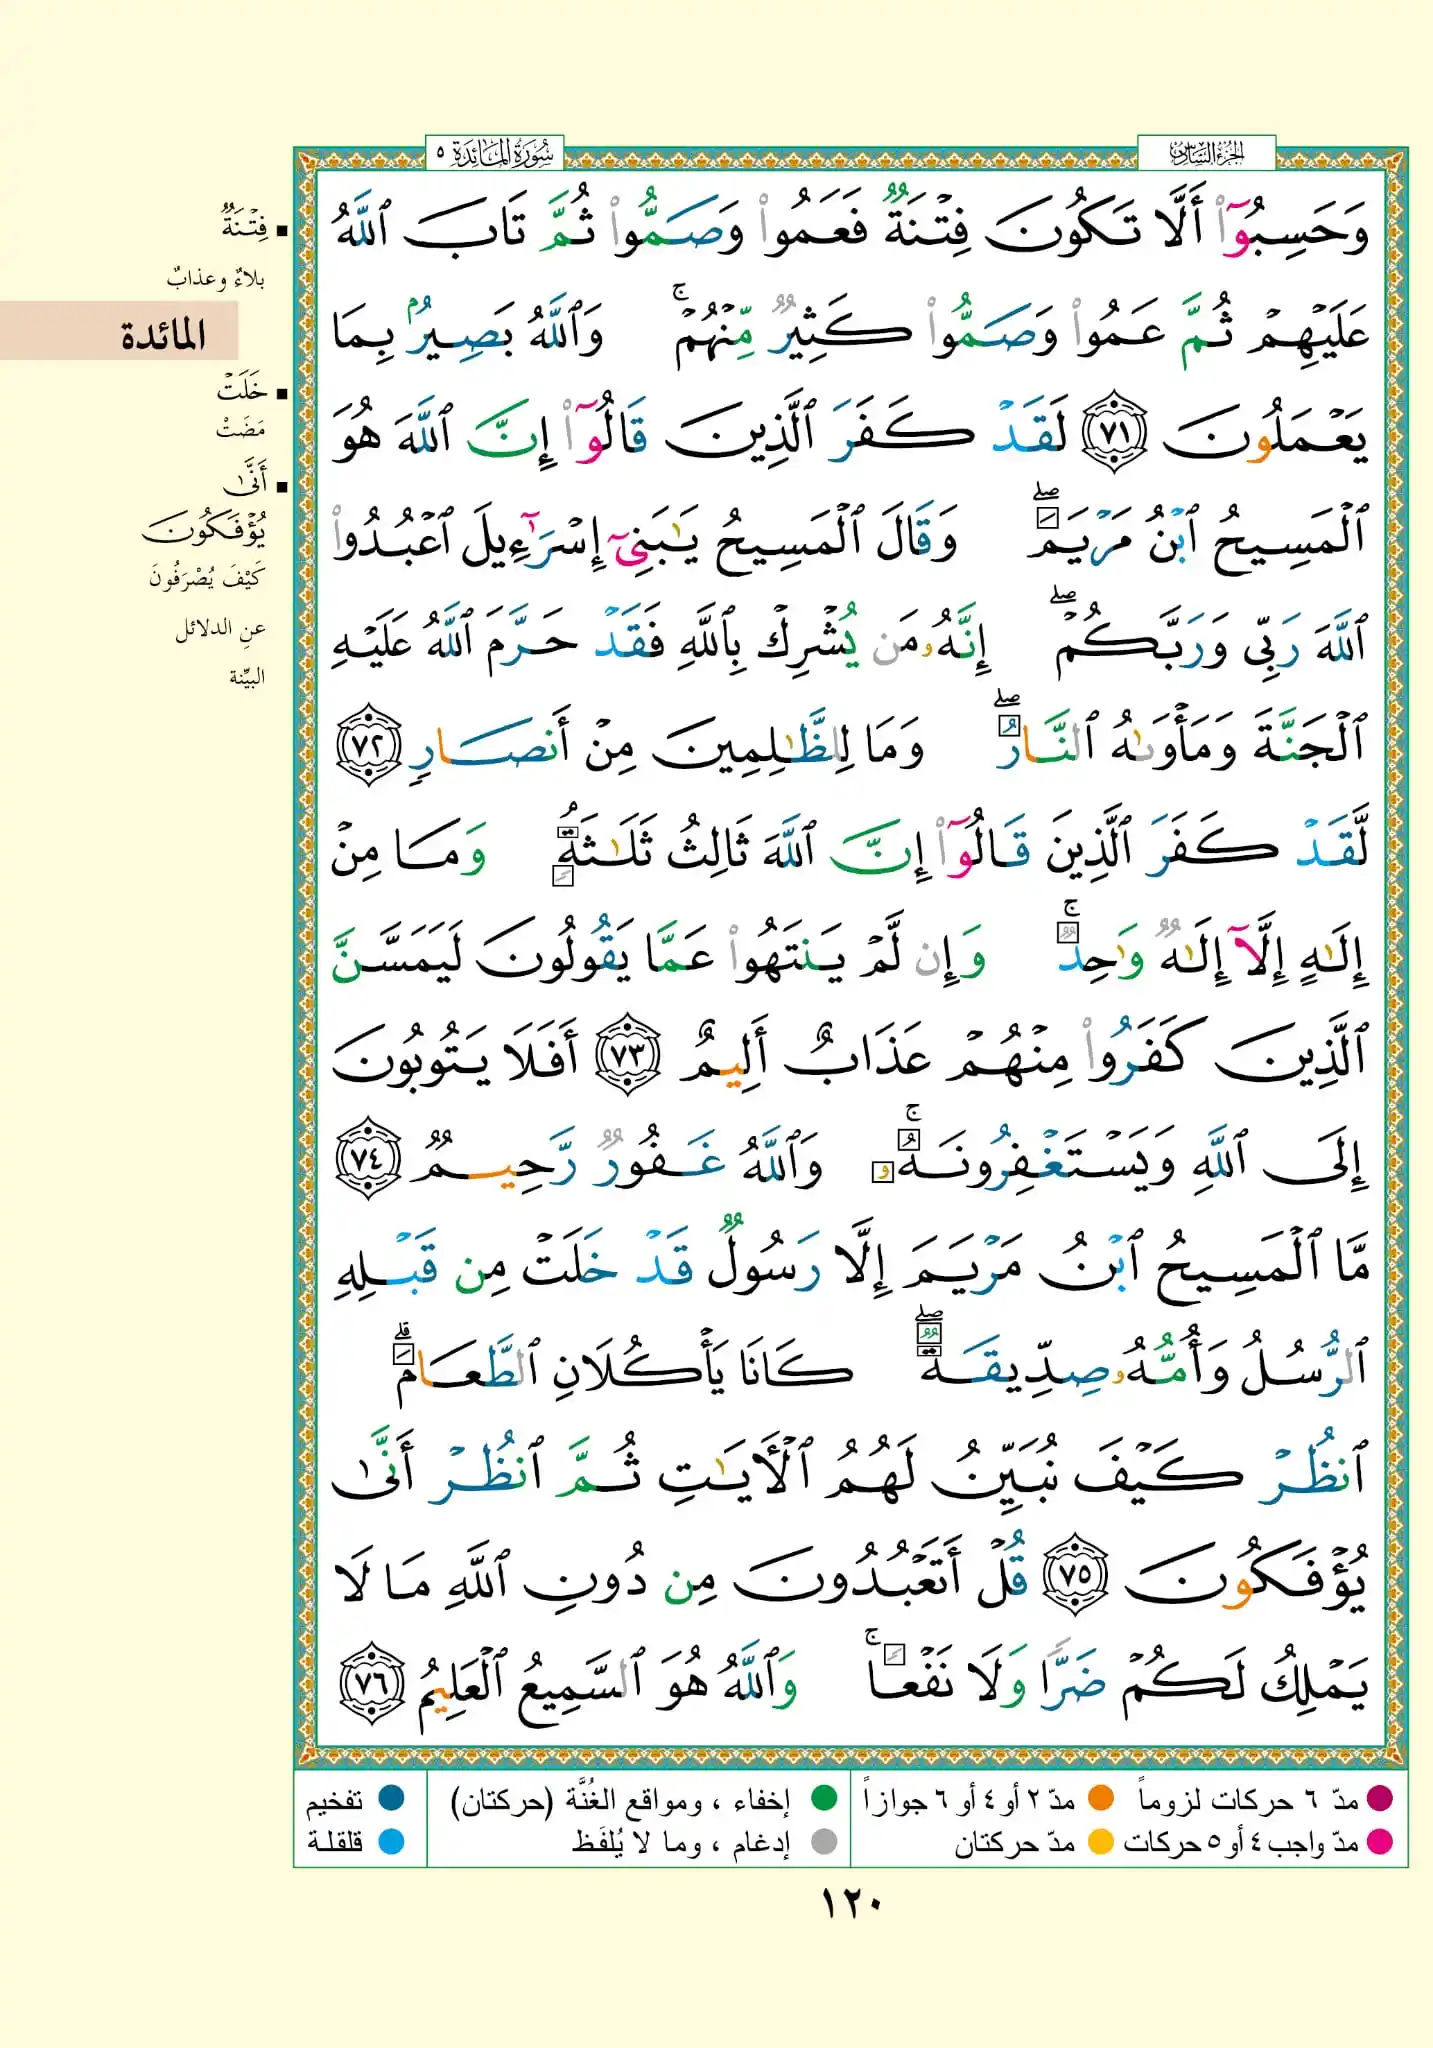 الجزء السادس
سورة المائدة ٥
وَحَسِبُوٓا۟ أَلَّا تَكُونَ فِتْنَةٌ فَعَمُوا۟ وَصَمُّوا۟ ثُمَّ تَابَ ٱللَّهُ
عَلَيْهِمْ ثُمَّ عَمُوا۟ وَصَمُّوا۟ كَثِيرٌ مِّنْهُمْ ۚ وَٱللَّهُ بَصِيرٌۢ بِمَا
يَعْمَلُونَ ٧١ لَقَدْ كَفَرَ ٱلَّذِينَ قَالُوٓا۟ إِنَّ ٱللَّهَ هُوَ
ٱلْمَسِيحُ ٱبْنُ مَرْيَمَ ۖ وَقَالَ ٱلْمَسِيحُ يَـٰبَنِىٓ إِسْرَٰٓءِيلَ ٱعْبُدُوا۟
ٱللَّهَ رَبِّى وَرَبَّكُمْ ۖ إِنَّهُۥ مَن يُشْرِكْ بِٱللَّهِ فَقَدْ حَرَّمَ ٱللَّهُ عَلَيْهِ
ٱلْجَنَّةَ وَمَأْوَىٰهُ ٱلنَّارُ ۖ وَمَا لِلظَّـٰلِمِينَ مِنْ أَنصَارٍ ٧٢
لَّقَدْ كَفَرَ ٱلَّذِينَ قَالُوٓا۟ إِنَّ ٱللَّهَ ثَالِثُ ثَلَـٰثَةٍ ۘ وَمَا مِنْ
إِلَـٰهٍ إِلَّآ إِلَـٰهٌ وَٰحِدٌ ۚ وَإِن لَّمْ يَنتَهُوا۟ عَمَّا يَقُولُونَ لَيَمَسَّنَّ
ٱلَّذِينَ كَفَرُوا۟ مِنْهُمْ عَذَابٌ أَلِيمٌ ٧٣ أَفَلَا يَتُوبُونَ
إِلَى ٱللَّهِ وَيَسْتَغْفِرُونَهُۥ ۚ وَٱللَّهُ غَفُورٌ رَّحِيمٌ ٧٤
مَّا ٱلْمَسِيحُ ٱبْنُ مَرْيَمَ إِلَّا رَسُولٌ قَدْ خَلَتْ مِن قَبْلِهِ
ٱلرُّسُلُ وَأُمُّهُۥ صِدِّيقَةٌ ۖ كَانَا يَأْكُلَانِ ٱلطَّعَامَ ۗ
ٱنظُرْ كَيْفَ نُبَيِّنُ لَهُمُ ٱلْـَٔايَـٰتِ ثُمَّ ٱنظُرْ أَنَّىٰ
يُؤْفَكُونَ ٧٥ قُلْ أَتَعْبُدُونَ مِن دُونِ ٱللَّهِ مَا لَا
يَمْلِكُ لَكُمْ ضَرًّا وَلَا نَفْعًا ۚ وَٱللَّهُ هُوَ ٱلسَّمِيعُ ٱلْعَلِيمُ ٧٦
فِتْنَةٌ
بلاءٌ وعذابٌ
المائدة
خَلَتْ
مَضَتْ
أَنَّىٰ
يُؤْفَكُونَ
كَيْفَ يُصْرَفُونَ
عنِ الدلائل
البيِّنة
مدّ ٦ حركات لزوماً
مدّ ٢ أو ٤ أو ٦ جوازاً
إخفاء ، ومواقع الغُنَّة (حركتان)
تفخيم
مدّ واجب ٤ أو ٥ حركات
مدّ حركتان
إدغام ، وما لا يُلفَظ
قلقلة
١٢٠